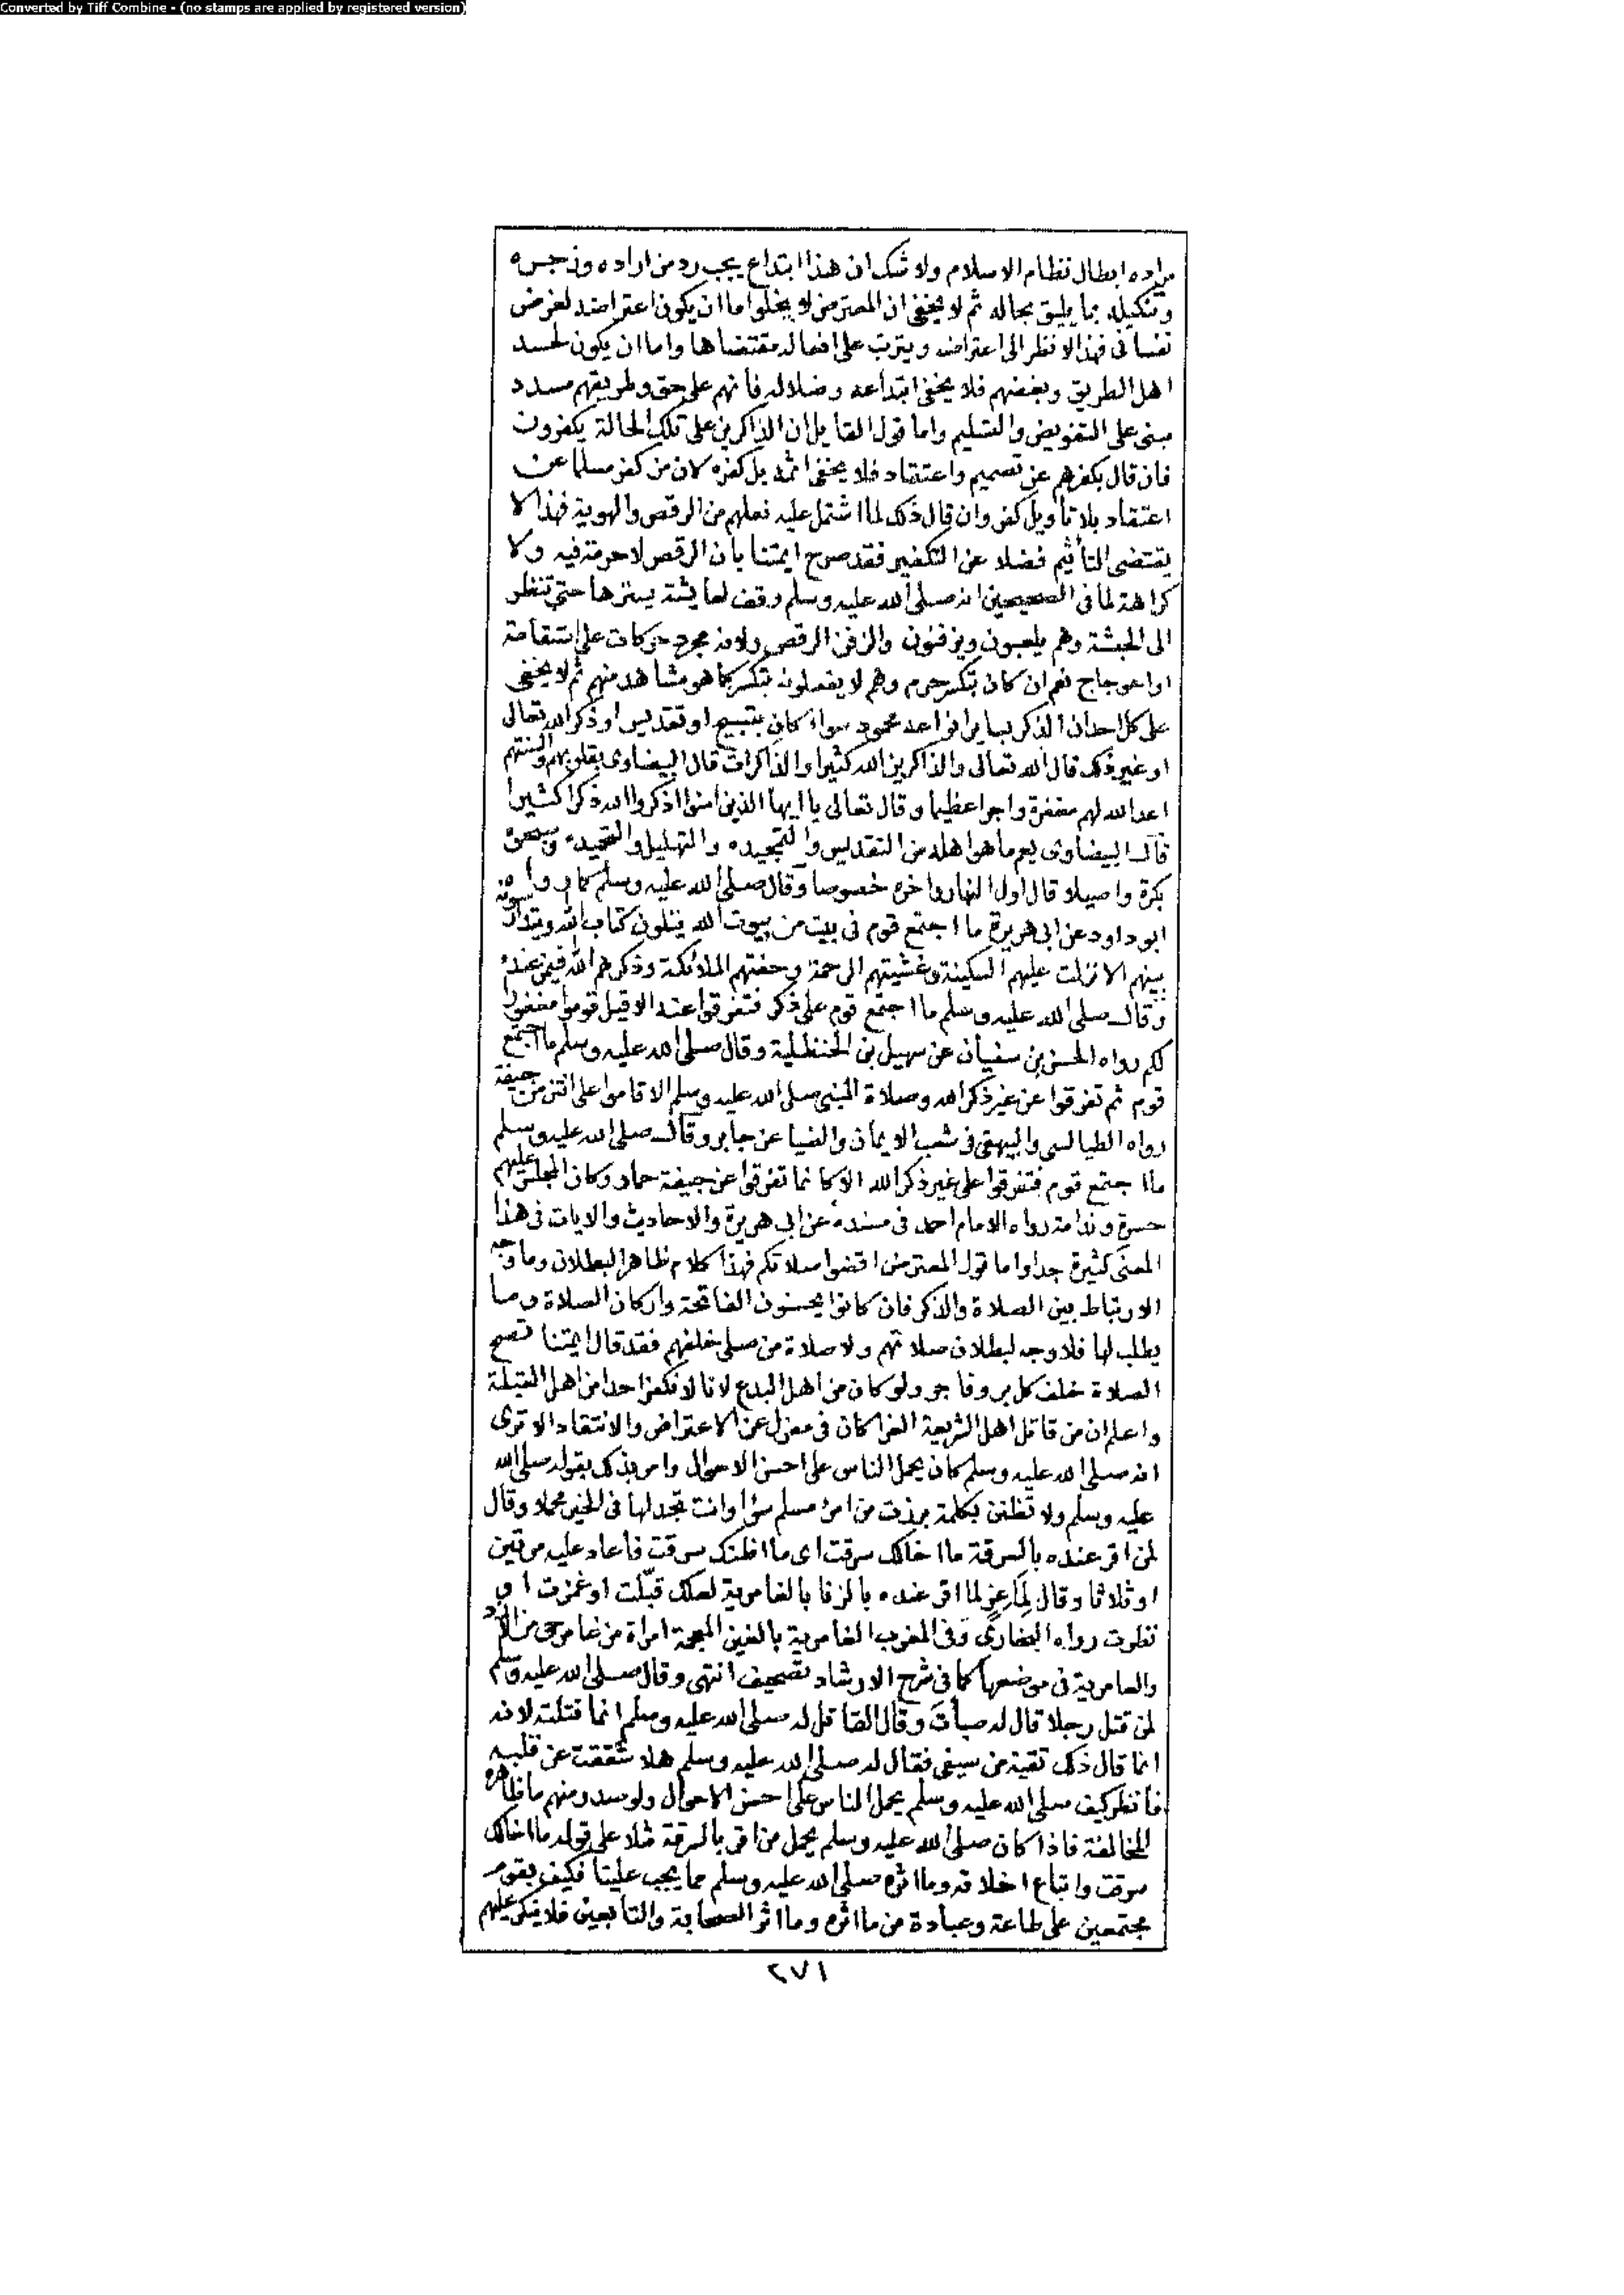 Converted by Tiff Combine - (no stamps are applied by registered version)
مراده ابطال نظام الاسلام ولا شك ان هذا ابتداع يجب رد من اراده وزجره
وتنكيله بما يليق بحاله ثم لا يخفى ان المعترض لا يخلوا اما ان يكون اعتراضه لغرض
نفسانى فهذا لا نظر الى اعتراضه ويترتب على افعاله مقتضاها واما ان يكون لحسد
اهل الطريق وبغضهم فلا يخفى ابتداعه وضلاله فانهم على حق وطريقهم مسدد
مبنى على التفويض والتسليم واما قول القايل ان الذاكرين على تلك الحالة يكفرون
فان قال بكفرهم عن تصميم واعتقاد فلا يخفى اثمه بل كفره لان من كفر مسلما عن
اعتقاد بلا تأويل كفر وان قال ذلك لما اشتمل عليه فعلهم من الرقص والهوية فهذا لا
يقتضى التأثيم فضلا عن التكفير فقد صرح ايمتنا بان الرقص لا حرمة فيه ولا
كراهة لما فى الصحيحين انه صلى الله عليه وسلم وقف لعايشة يسترها حتى تنظر
الى الحبشة وهم يلعبون ويزفنون والزفن الرقص ولانه مجرد حركات على استقامة
او اعوجاج نعم ان كان بتكسر حرم وهم لا يفعلونه بتكسر كما هو مشاهد منهم ثم لا يخفى
على كل احد ان الذكر بساير انواعه محمود سواء كان بتسبيح او تقديس او ذكر الله تعالى
او غير ذلك قال الله تعالى والذاكرين الله كثيرا والذاكرات قال البيضاوى بقلوبهم والسنتهم
اعد الله لهم مغفرة واجرا عظيما وقال تعالى يا ايها الذين امنوا اذكروا الله ذكرا كثيرا
قال البيضاوى يعم ما هو اهله من التقديس والتمجيده والتهليل والتحميد وسبحوه
بكرة واصيلا قال اول النهار واخره خصوصا وقال صلى الله عليه وسلم كما رواه
ابو داود عن ابى هريرة ما اجتمع قوم فى بيت من بيوت الله يتلون كتاب الله ويتدارسونه
بينهم الا نزلت عليهم السكينة وغشيتهم الرحمة وحفتهم الملائكة وذكرهم الله فيمن عنده
وقال صلى الله عليه وسلم ما اجتمع قوم على ذكر فتفرقوا عنه الا قيل قوموا مغفورا
لكم رواه الحسن بن سفيان عن سهيل بن الحنظلية وقال صلى الله عليه وسلم ما اجتمع
قوم ثم تفرقوا عن غير ذكر الله وصلاة النبى صلى الله عليه وسلم الا قاموا على انتن من جيفة
رواه الطيالسى والبيهقى فى شعب الايمان والضيا عن جابر وقال صلى الله عليه وسلم
ما اجتمع قوم فتفرقوا على غير ذكر الله الا كانما تفرقوا عن جيفة حمار وكان المجلس عليهم
حسرة وندامة رواه الامام احمد فى مسنده عن ابى هريرة والاحاديث والايات فى هذا
المعنى كثيرة جدا واما قول المعترض اقضوا صلاتكم فهذا كلام ظاهر البطلان وما وجه
الارتباط بين الصلاة والذكر فان كانوا يحسنون الفاتحة واركان الصلاة وما
يطلب لها فلا وجه لبطلان صلاتهم ولا صلاة من صلى خلفهم فقد قال ايمتنا تصح
الصلاة خلف كل بر وفاجر ولو كان من اهل البدع لانا لا نكفر احدا من اهل القبلة
واعلم ان من قاتل اهل الشريعة الغرا كان فى معزل عن الاعتراض والانتقاد الا ترى
انه صلى الله عليه وسلم كان يحمل الناس على احسن الاحوال وامر بذلك بقوله صلى الله
عليه وسلم ولا تظنن بكلمة برزت من امرئ مسلم سوأ وانت تجد لها فى الخير محملا وقال
لمن اقر عنده بالسرقة ما اخالك سرقت اى ما اظنك سرقت فاعاد عليه مرتين
او ثلاثا وقال لماعز لما اقر عنده بالزنا بالغامرية لعلك قبّلت او غمزت او
نظرت رواه البخارى وفى المغرب الغامرية بالغين المعجمة امراة من غامر حى من الازد
والعامرية فى موضعها كما فى شرح الارشاد تصحيف انتهى وقال صلى الله عليه وسلم
لمن قتل رجلا قال له صبأت وقال القاتل له صلى الله عليه وسلم انما قتلته لانه
انما قال ذلك تقية من سيفى فقال له صلى الله عليه وسلم هلا شققت عن قلبه
فانظر كيف صلى الله عليه وسلم يحمل الناس على احسن الاحوال ولو صدر منهم ما ظاهره
المخالفة فاذا كان صلى الله عليه وسلم يحمل من اقر بالسرقة مثلا على قوله ما اخالك
سرقت واتباع اخلاقه وما اثره صلى الله عليه وسلم مما يجب علينا فكيف بقوم
مجتمعين على طاعة وعبادة من ما اثره وما اثر الصحابة والتابعين فلا ينكر عليهم
٢٧١